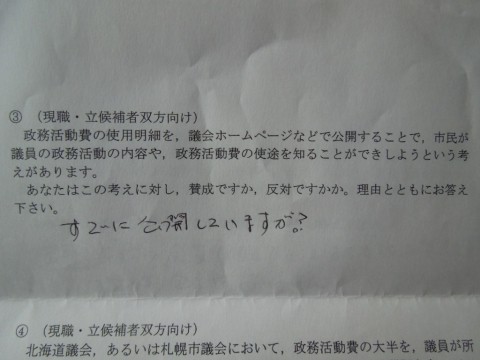 ③ (現職・立候補者双方向け)
政務活動費の使用明細を，議会ホームページなどで公開することで，市民が
議員の政務活動の内容や，政務活動費の使途を知ることができしようという考
えがあります。
あなたはこの考えに対し，賛成ですか，反対ですかか。理由とともにお答え
下さい。
すでに公開していますが？
④ (現職・立候補者双方向け)
北海道議会，あるいは札幌市議会において，政務活動費の大半を，議員が所